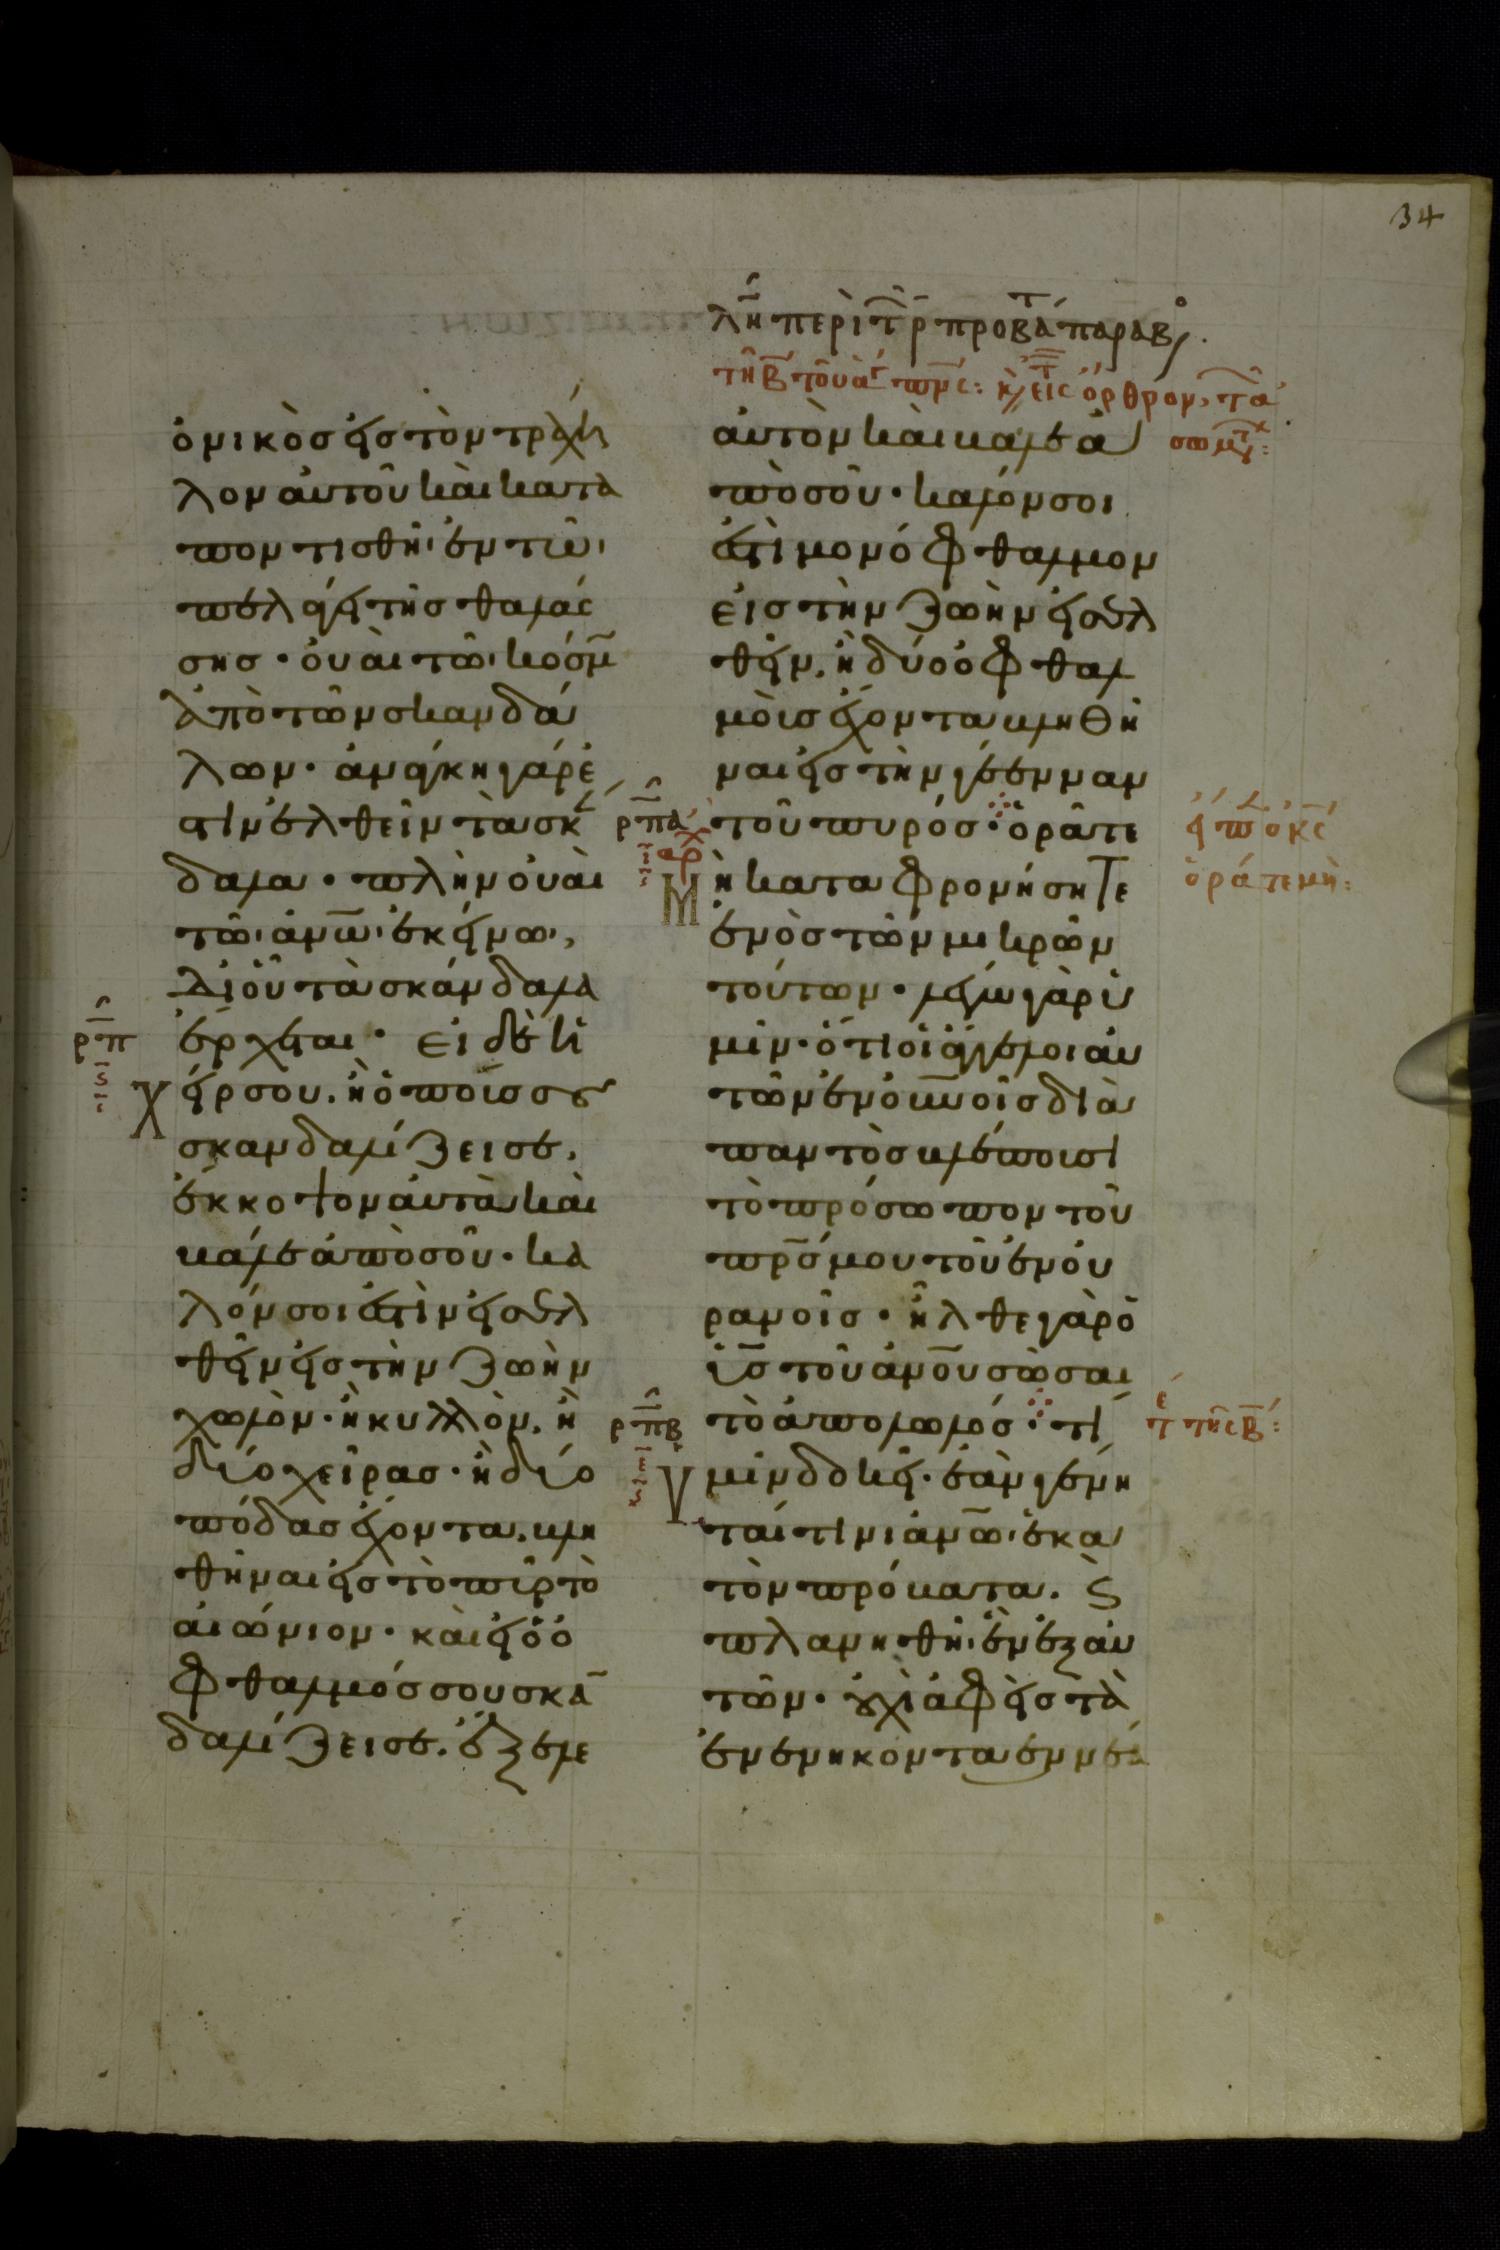 34
λη περὶ τ ρ προβάτ παραβο
τῆ β του αγ
ὀνικὸς εἰς τὸν τράχη
λον αὐτοῦ καὶ κατα
ποντισθῆι ἐν τῶι
πελάγει τῆς θαλάσ
σης · οὐαὶ τῶι κόσμ̅
ἀπὸ τῶν σκανδά
λων · ἀνάγκη γάρ ἐ
στιν ἐλθεῖν τὰ σκ
δαλα · πλὴν οὐαὶ
τῶι ἀνω̅ι ἐκείνωι,
δι οὗ τὰ σκάνδαλα
ρπ ἔρχεται · εἰ δὲ ἡ
χείρ σου, ἢ ὁ ποῦσ σου
σκανδαλίζει σε,
ἔκκοψον αὐτὰ καὶ
βάλε ἀπὸ σοῦ · κα
λόν σοι ἐστὶν εἰσελ
θεῖν εἰς τὴν ζωὴν
χωλὸν · ἢ κυλλὸν, ἢ
δύο χεῖρας · ἢ δύο
πόδας ἔχοντα, βλη
θῆναι εἰς τὸ πῦρ τὸ
αἰώνιον · καὶ εἰ ὁ ὀ
φθαλμός σου σκα̅
δαλίζει σε, ἔξελε
αὐτὸν καὶ βάλε ἀ
πὸ σοῦ · καλόν σοι
ἐστὶ μονόφθαλμον
εἰς τὴν ζωὴν εἰσελ
θεῖν, ἢ δύο ὀφθαλ
μοὺς ἔχοντα βληθῆ
ναι εἰς τὴν γέενναν
ρπα τοῦ πυρός · ὁρᾶτε
μὴ καταφρονήσητε
ὁράτε μὴ:
ἑνὸς τῶν μικρῶν
τούτων · λέγω γὰρ ὑ
μῖν · ὅτι οἱ ἄγγελοι αὐ
τῶν ἐν ου̅νοῖς διὰ
παντὸς βλέπουσι
τὸ πρόσωπον τοῦ
πρ̅ς μου τοῦ ἐν οὐ
ρανοῖς · ἦλθε γὰρ ὁ
υ̅ς τοῦ ἀνο̅υ σῶσαι
ρπβ τὸ ἀπολωλός · τί
τῆς β:
ὑμῖν δοκεῖ · ἐὰν γένη
ταί τινι ἀνω̅ι ἑκα
τὸν πρόβατα, ϛ
πλανηθῆι ἓν ἐξ αὐ
τῶν · οὐχὶ ἀφεὶς τὰ
ἐνενηκονταεννέα